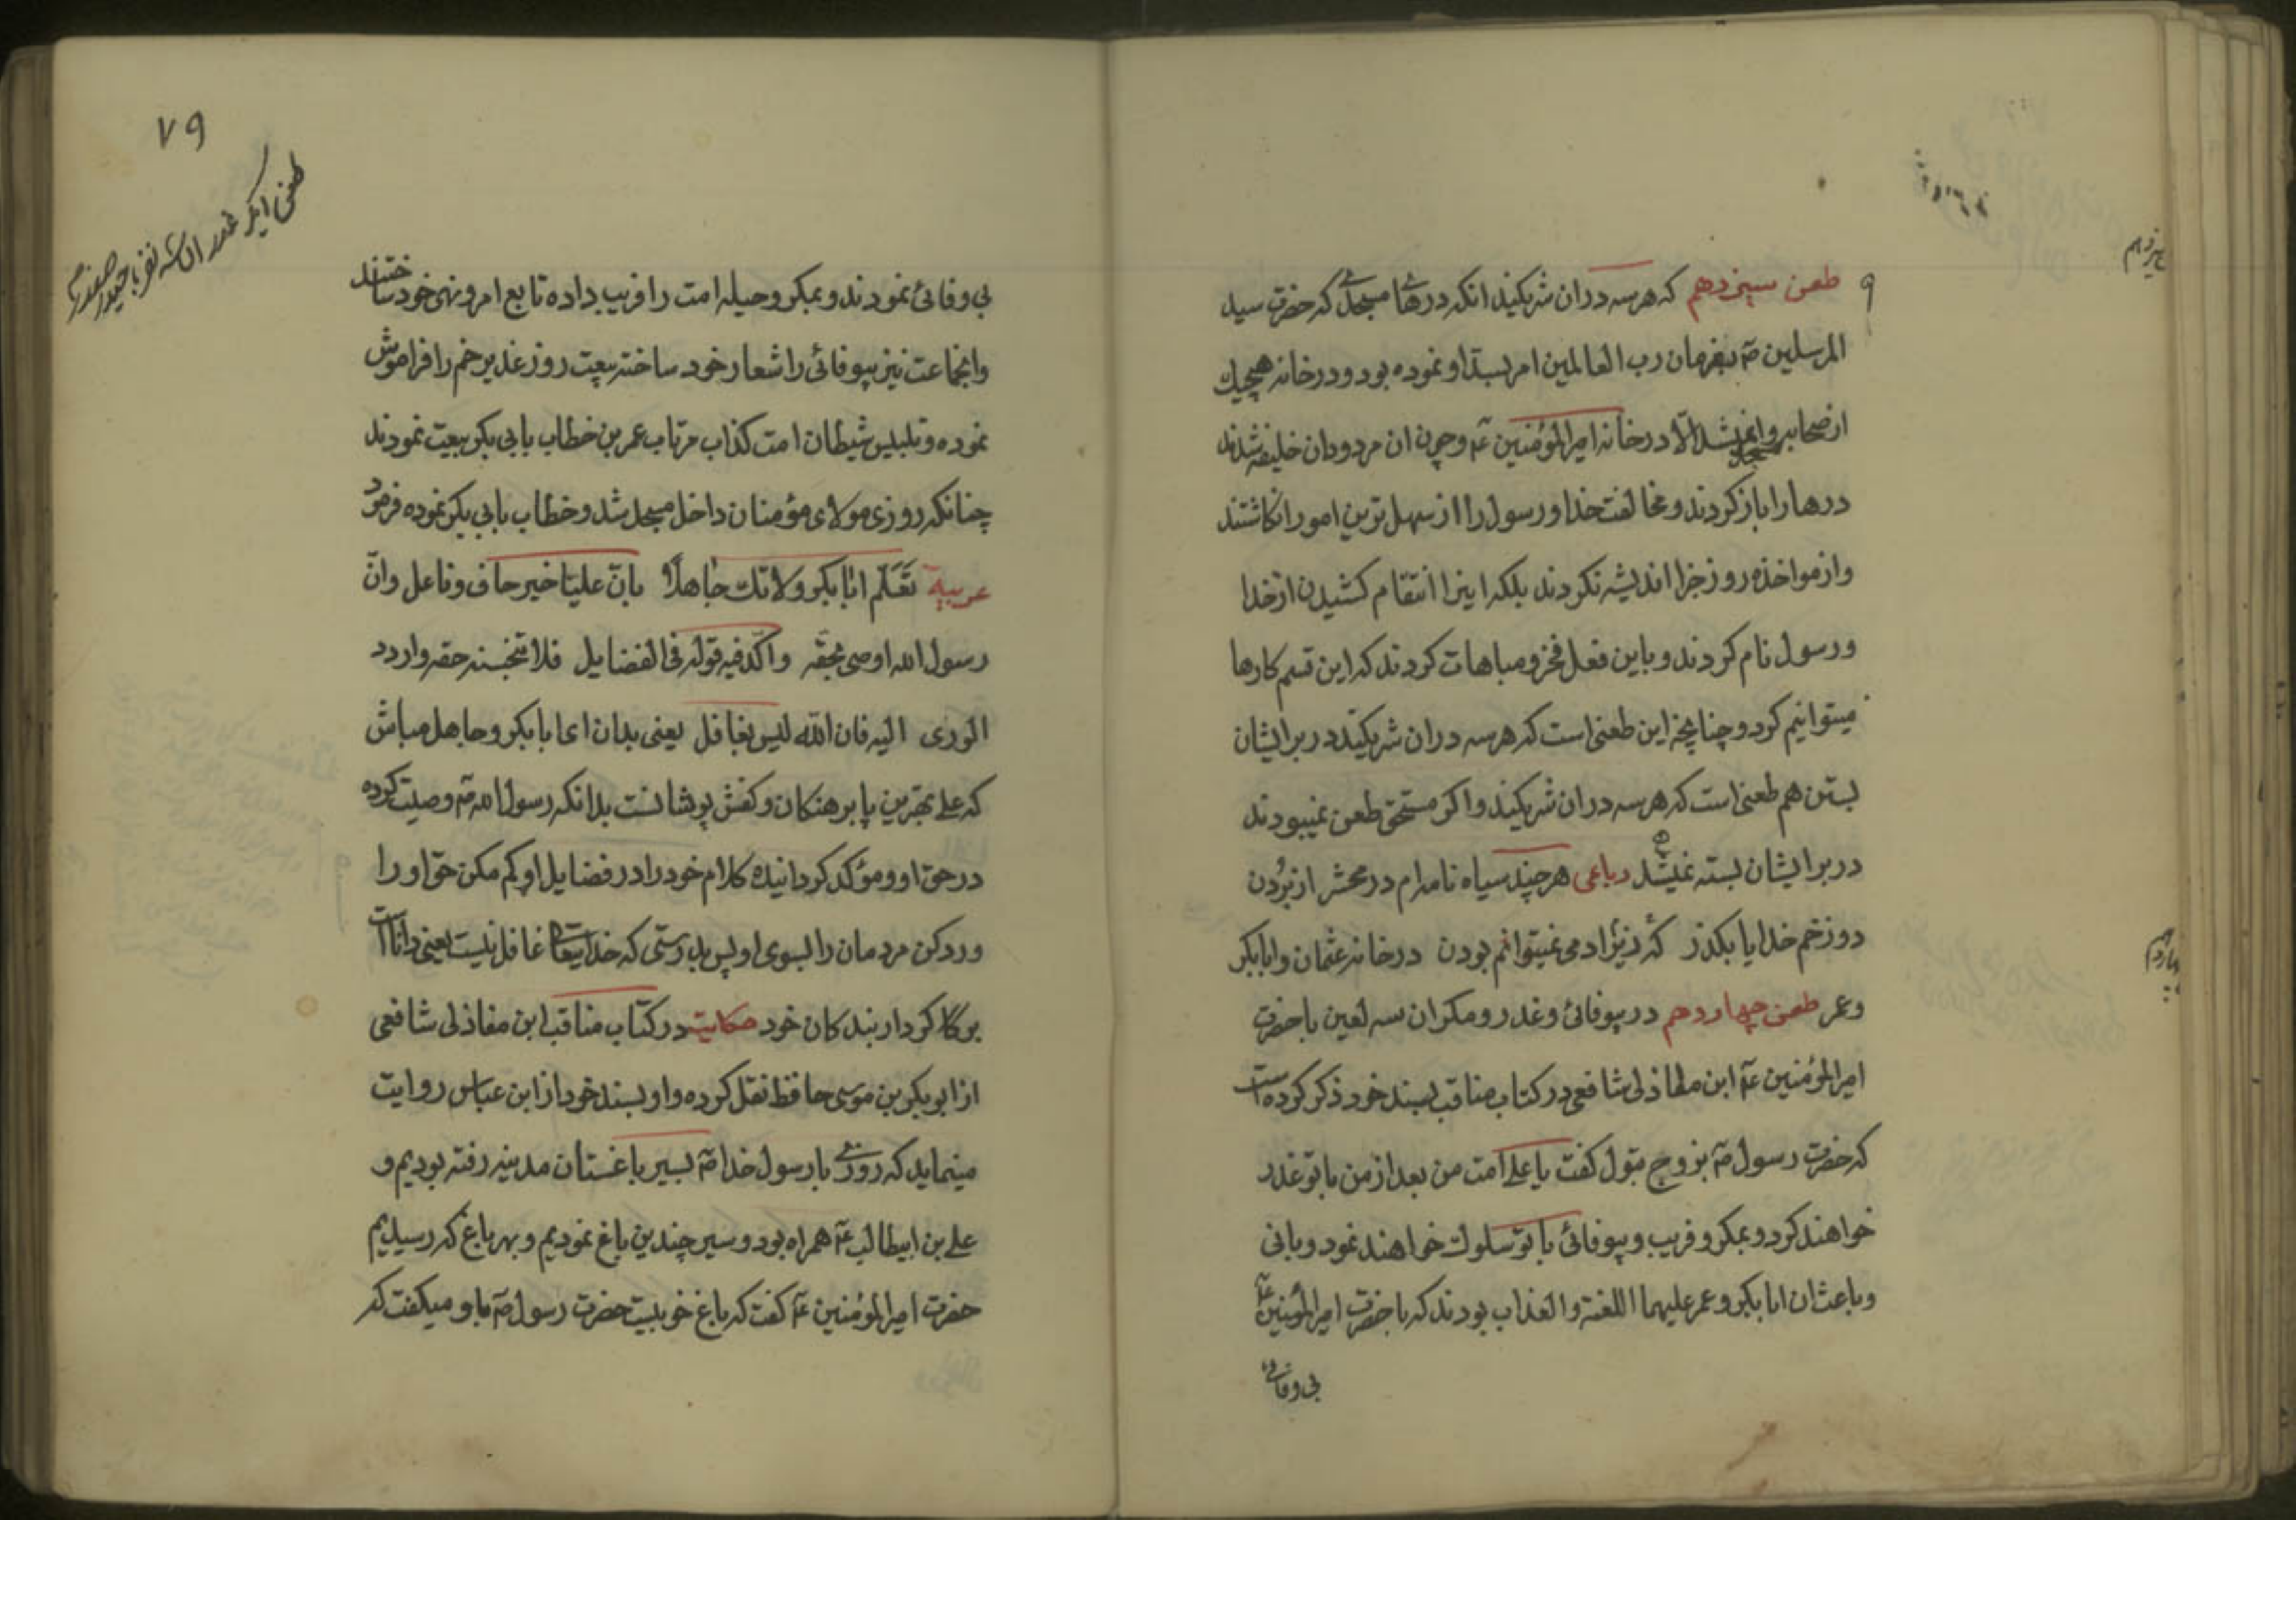 طعن سیزدهم که هر سه در ان شریکیند انکه درهای مسجدی که حضرت سید
المرسلین ص بفرمان رب العالمین امر بسد او نموده بود و در خانه هیچیک
از صحابه وا نمیشد الا در خانه امیرالمؤمنین ع و چون ان مردودان خلیفه شدند
بمسجد
درها را باز کردند و مخالفت خدا و رسول را از سهل ترین امور انکاشتند
و از مواخذه روز جزا اندیشه نکردند بلکه اینرا انتقام کشیدن از خدا
و رسول نام کردند و باین فعل فخر و مباهات کردند که این قسم کارها
میتوانیم کرد و چنانچه این طعنی است که هر سه در ان شریکیند در بر ایشان
بستن هم طعنی است که هر سه در ان شریکیند و اکر مستحق طعن نمیبودند
در بر ایشان بسته نمیشد رباعی هر چند سیاه نامه‌ام در محشر از بردن
دوزخم خدایا بکذر که نیز ادمی نمیتوانم بودن در خانه عثمان و ابابکر
و عمر طعن چهاردهم در بیوفائی و غدر و مکر ان سه لعین با حضرت
امیرالمؤمنین ع ابن مغاذلی شافعی در کتاب مناقب بسند خود ذکر کرده است
که حضرت رسول ص بزوج بتول کفت یا علی امت من بعد از من با تو غدر
خواهند کرد و بمکر و فریب و بیوفائی با تو سلوک خواهند نمود و بانی
و باعث ان ابابکر و عمر علیهما اللعنة و العذاب بودند که با حضرت امیرالمؤمنین ع
بی وفائی
سیزدهم
چهاردهم
۷۹
طعن اینکه غدر ان سه نفر با حیدر صفدر
بی وفائی نمودند و بمکر و حیله امت را فریب داده تابع امر و نهی خود ساختند
و انجماعت نیز بیوفائی را شعار خود ساخته بیعت روز غدیر خم را فراموش
نموده و تلبلیس شیطان امت کذاب مرتاب عمر بن خطاب بابی بکر بیعت نمودند
چنانکه روزی مولای مؤمنان داخل مسجد شد و خطاب بابی بکر نموده فرمود
عربیة تعلم ابابکر و لا تک جاهلا بان علیا خیر حاف و ناعل و ان
رسول الله اوصی بحقه و اکد فیه قوله فی الفضایل فلا تبخسنه حقه و اردد
الوری الیه فان الله لیس بغافل یعنی بدان ای ابابکر و جاهل مباش
که علی بهترین پا برهنکان و کفش پوشانست بدانکه رسول الله ص وصیت کرده
در حق او و مؤکد کردانیده کلام خود را در فضایل او کم مکن حق او را
و رد کن مردمان را بسوی او پس بدرستی که خدایتعالی غافل نیست یعنی دانا است
بر کار کردار بندکان خود حکایت در کتاب مناقب ابن مغاذلی شافعی
از ابو بکر بن موسی حافظ نقل کرده و او بسند خود از ابن عباس روایت
مینماید که روزی با رسول خدا ص بسیر باغستان مدینه رفته بودیم و
علی بن ابیطالب ع همراه بود و سیر چندین باغ نمودیم و بهر باغ که رسیدیم
حضرت امیرالمؤمنین ع کفت که باغ خوبیست حضرت رسول ص باو میکفت که